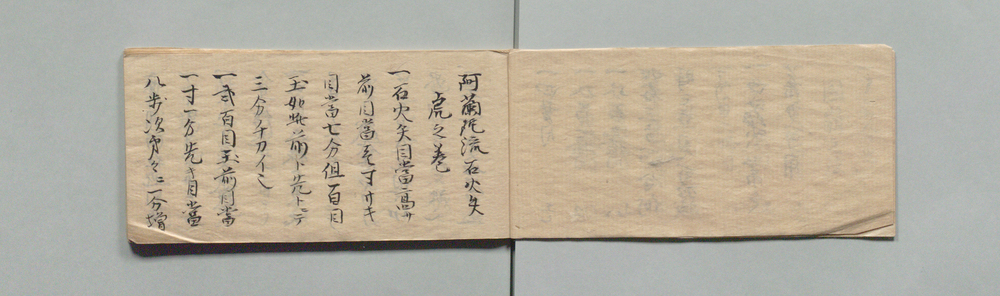 阿蘭陀流石火矢
虎之巻
一石火矢目當高サ
前目當壱寸サキ
目當七分但百目
玉如此前ト先トニテ
三分チカイ也
一弐百目玉前目當
一寸一分先キ目當
八歩次第々ニ一分増